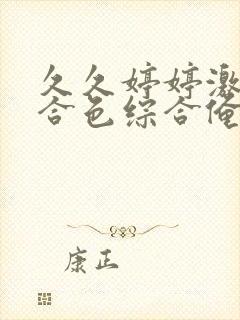 久久婷婷激
合色综合俺
康正